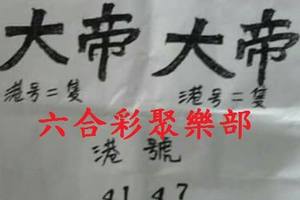 大帝 大帝
港号二隻 港号二隻
六合彩聚樂部
港號
41 47